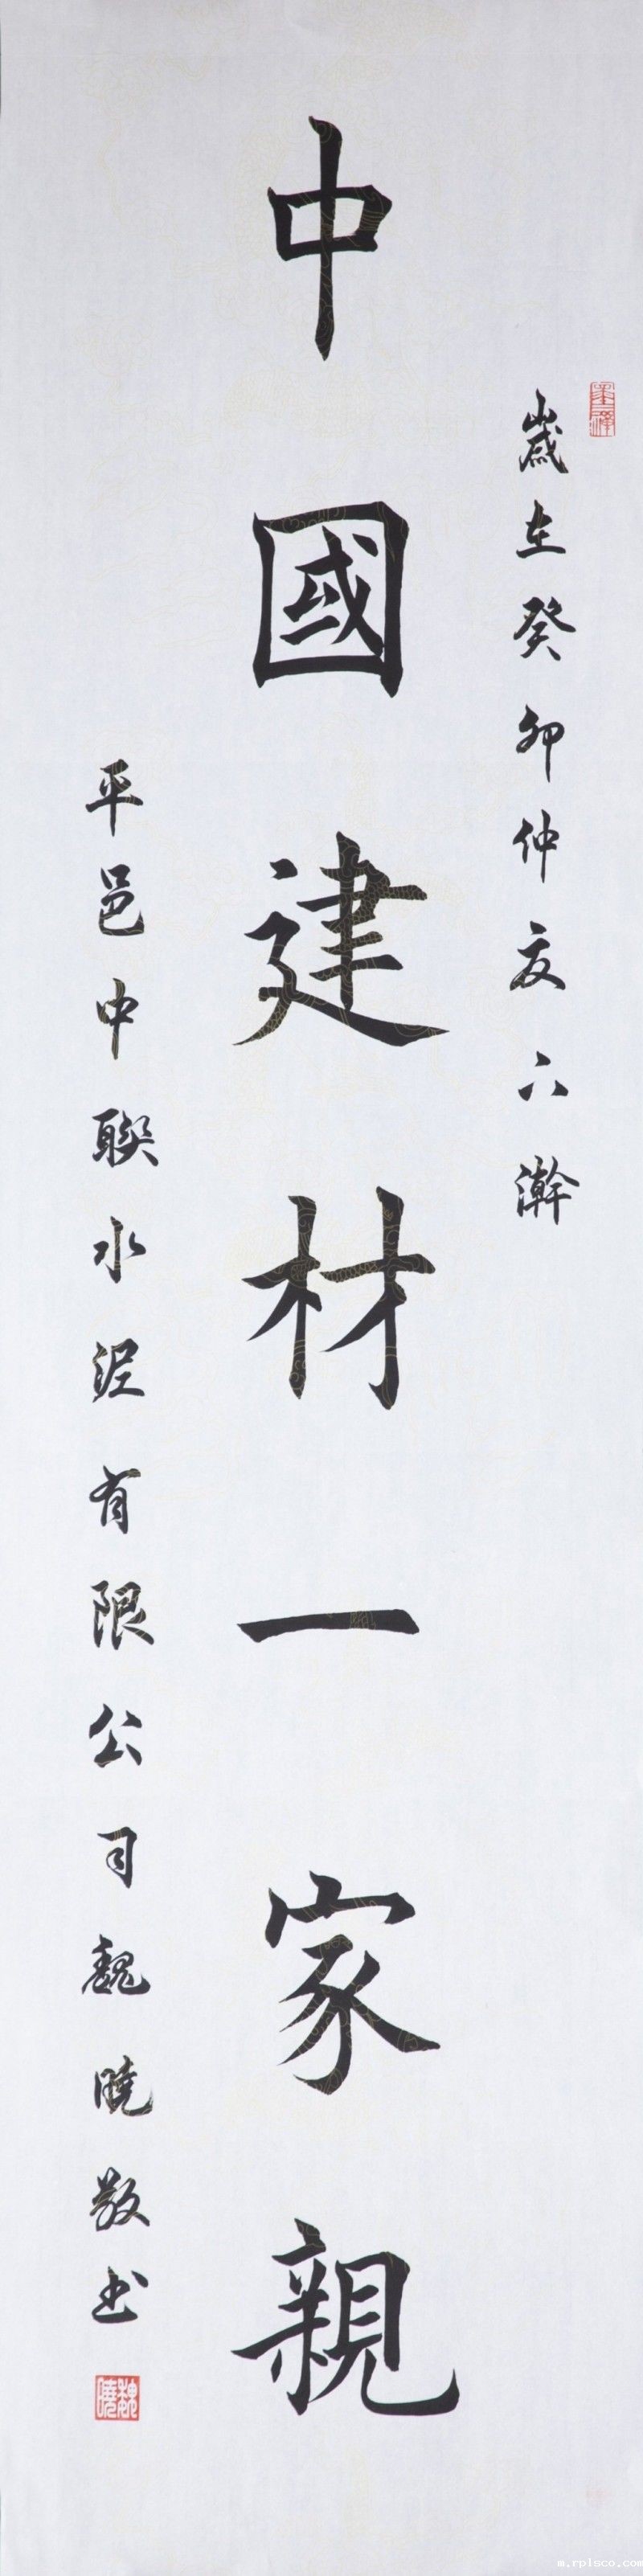 歲在癸卯仲夏六瀚
中國建材一家親
平邑中聯水泥有限公司魏曉敬书
墨澤
魏曉
m.rplsco.com